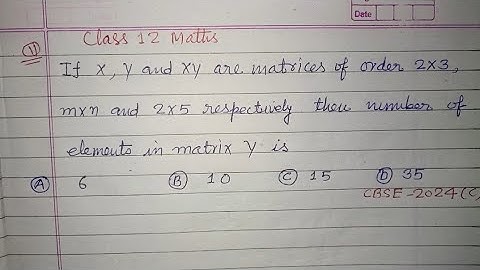 Date
Class 12 Maths
11 If X, Y and XY are matrices of order 2x3,
mxn and 2x5 respectively then number of
elements in matrix Y is
A 6 B 10 C 15 D 35
CBSE-2024(C)